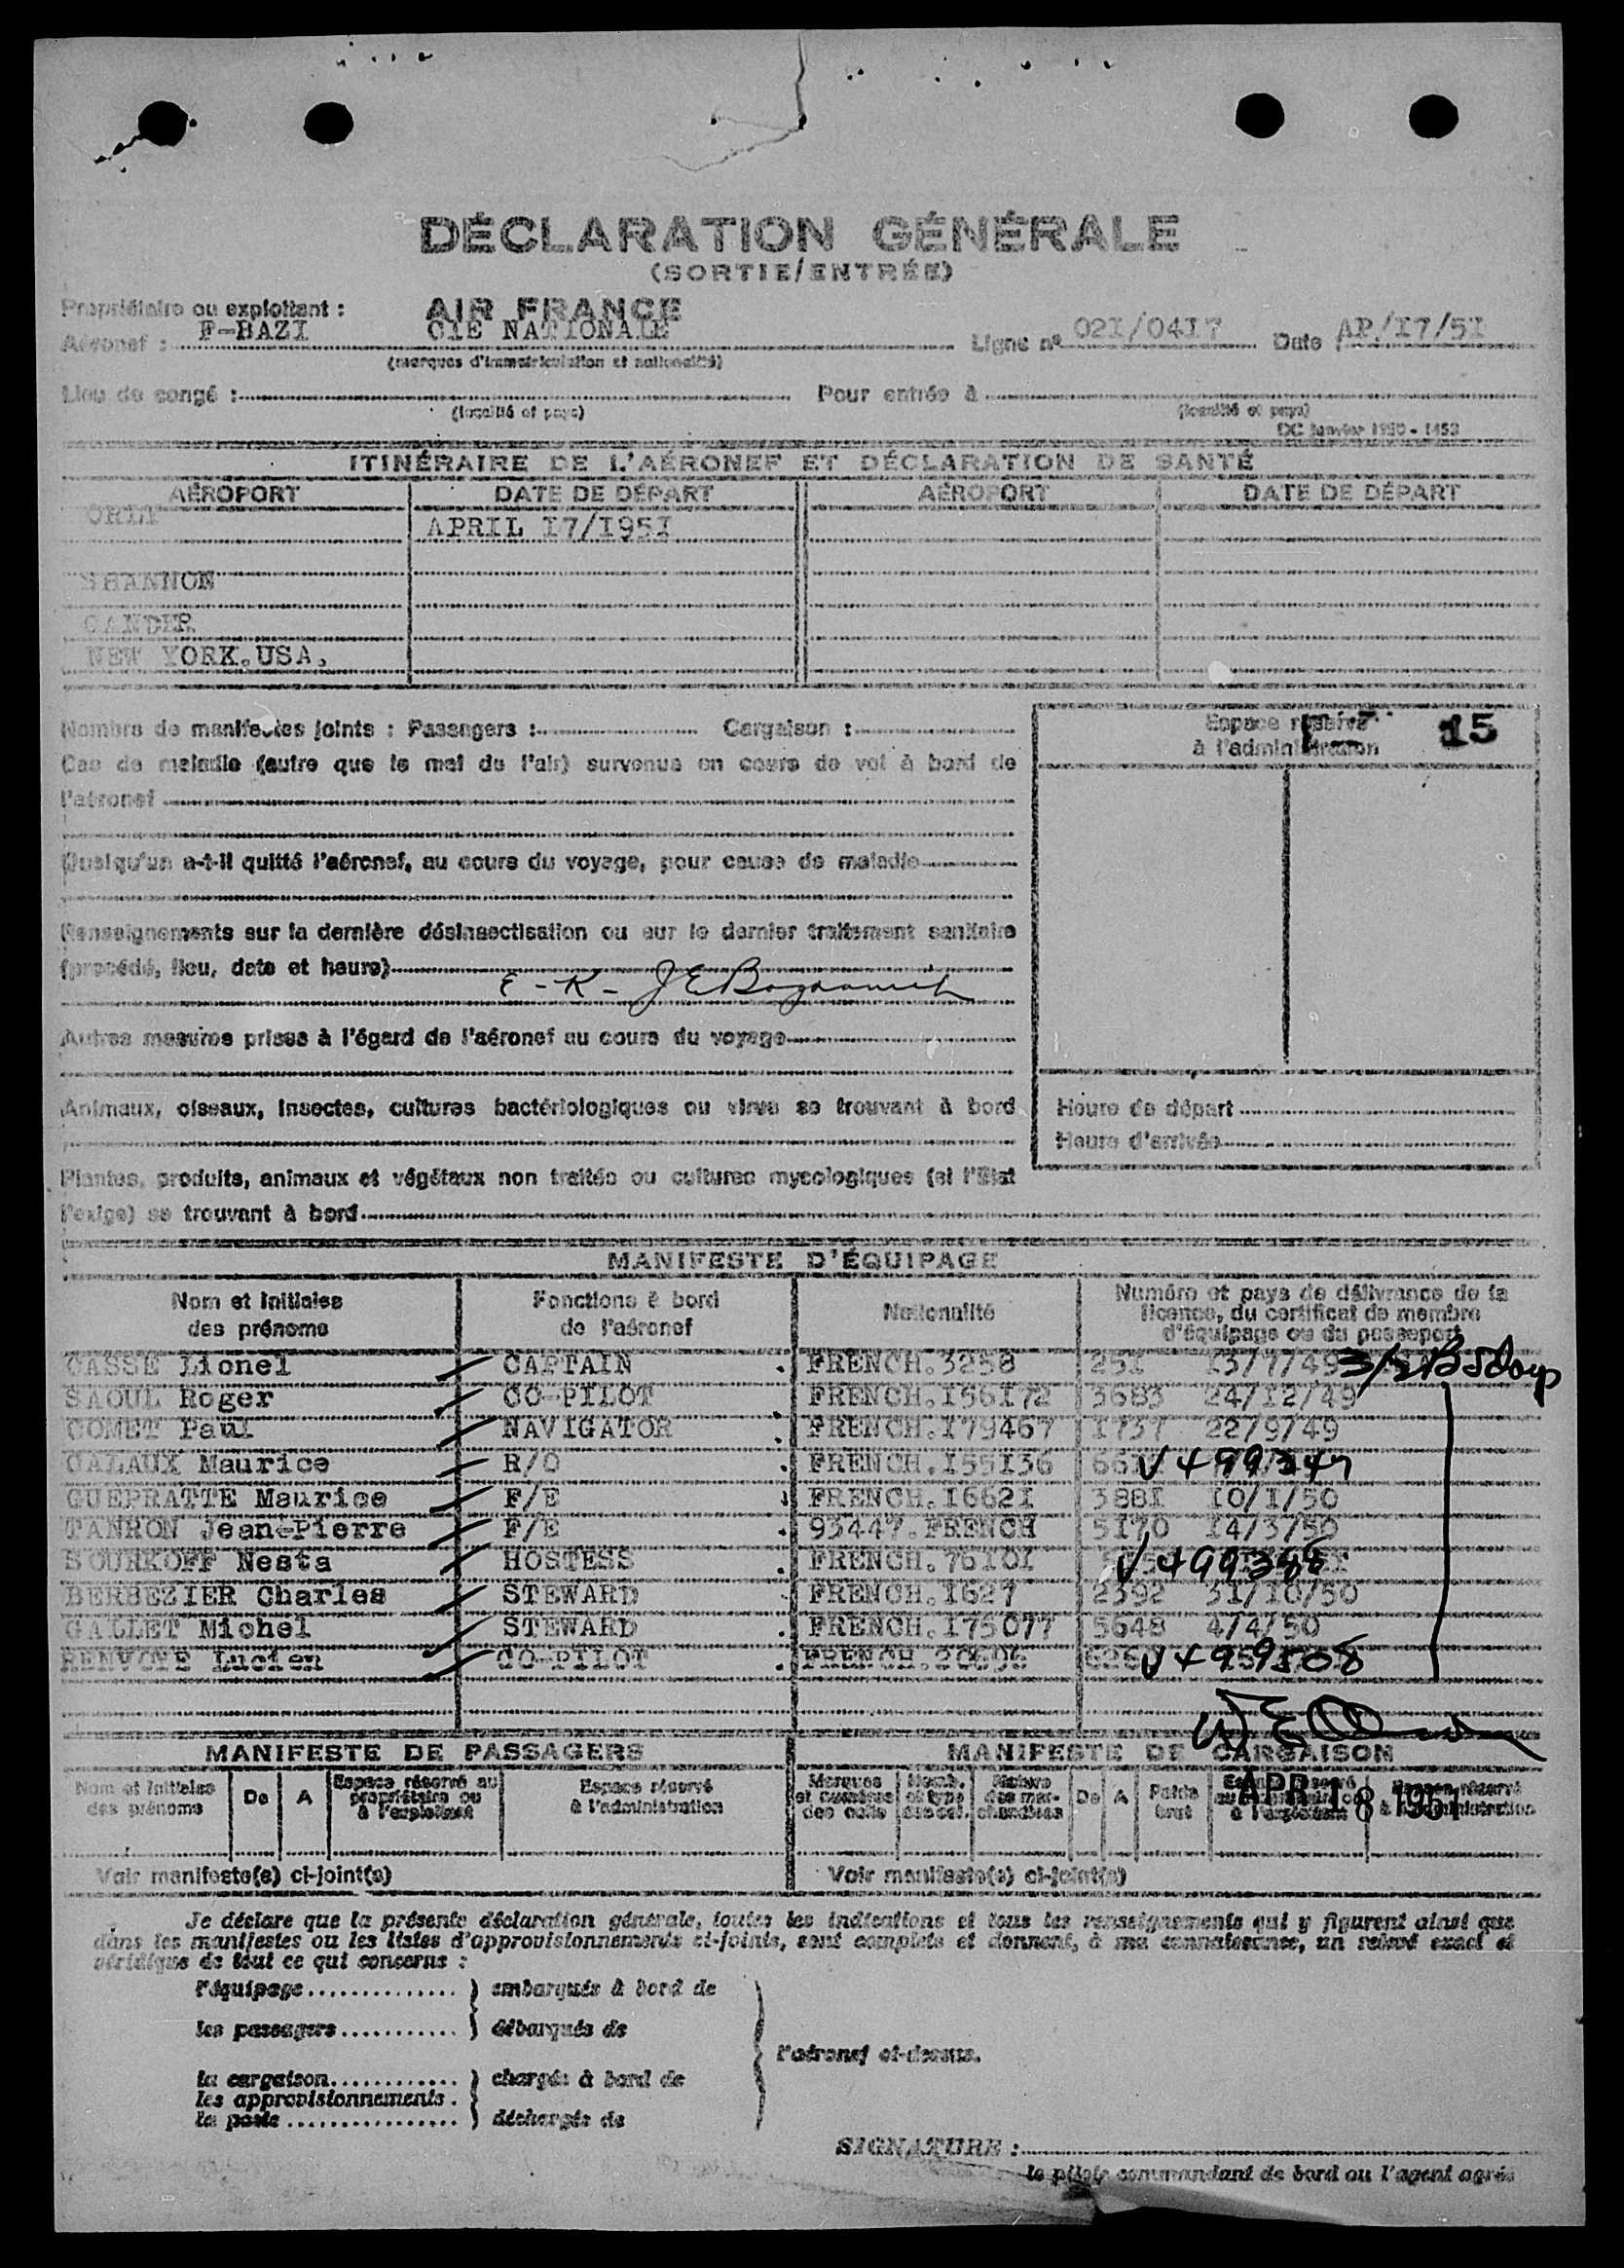 DÉCLARATION GÉNÉRALE
(SORTIE/ENTRÉE)
Propriétaire ou exploitant : AIR FRANCE
Aéronef : F-BAZI CIE NATIONALE Ligne nº 02I/04I7 Date AP/I7/5I
(marques d'immatriculation et nationalité)
Lieu de congé : Pour entrée à
(localité et pays) (localité et pays)
DC Janvier 1950 - 1453
ITINÉRAIRE DE L'AÉRONEF ET DÉCLARATION DE SANTÉ
AÉROPORT DATE DE DÉPART AÉROPORT DATE DE DÉPART
ORLY
APRIL I7/I95I
SHANNON
GANDER
NEW YORK.USA.
Nombre de manifestes joints : Passagers : Cargaison :
Espace réservé
à l'administration
15
Cas de maladie (autre que le mal de l'air) survenus en cours de vol à bord de
l'aéronef
Quelqu'un a-t-il quitté l'aéronef, au cours du voyage, pour cause de maladie
Renseignements sur la dernière désinsectisation ou sur le dernier traitement sanitaire
(procédé, lieu, date et heure)
E - K -
Autres mesures prises à l'égard de l'aéronef au cours du voyage
Animaux, oiseaux, insectes, cultures bactériologiques ou virus se trouvant à bord
Heure de départ
Heure d'arrivée
Plantes, produits, animaux et végétaux non traités ou cultures mycologiques (si l'État
l'exige) se trouvant à bord
MANIFESTE D'ÉQUIPAGE
Nom et initiales des prénoms Fonctions à bord de l'aéronef Nationalité Numéro et pays de délivrance de la licence, du certificat de membre d'équipage ou du passeport
CASSE Lionel CAPTAIN FRENCH.3258 25I I3/7/49
SAOUL Roger CO-PILOT FRENCH.I56I72 3683 24/I2/49
COMET Paul NAVIGATOR FRENCH.I79467 I737 22/9/49
CALAUX Maurice R/O FRENCH.I55I36
GUEPRATTE Maurice F/E FRENCH.I662I 388I I0/I/50
TANRON Jean-Pierre F/E 93447.FRENCH 5I70 I4/3/50
SOURKOFF Nesta HOSTESS FRENCH.76I0I
BERBEZIER Charles STEWARD FRENCH.I627 2392 3I/I0/50
GALLET Michel STEWARD FRENCH.I75077 5648 4/4/50
RENVOYE Lucien CO-PILOT FRENCH.20696
MANIFESTE DE PASSAGERS MANIFESTE DE CARGAISON
Nom et initiales des prénoms De A Espace réservé au propriétaire ou à l'exploitant Espace réservé à l'administration Marques et numéros des colis Nomb. et type des col. Nature des mar- chandises De A Poids brut
APR 18 1951
Voir manifeste(s) ci-joint(s) Voir manifeste(s) ci-joint(s)
Je déclare que la présente déclaration générale, toutes les indications et tous les renseignements qui y figurent ainsi que
dans les manifestes ou les listes d'approvisionnements ci-joints, sont complets et donnent, à ma connaissance, un relevé exact et
véridique de tout ce qui concerne :
l'équipage embarqués à bord de
les passagers débarqués de
l'aéronef ci-dessus.
la cargaison chargés à bord de
les approvisionnements
la poste déchargés de
SIGNATURE :
le pilote commandant de bord ou l'agent agréé